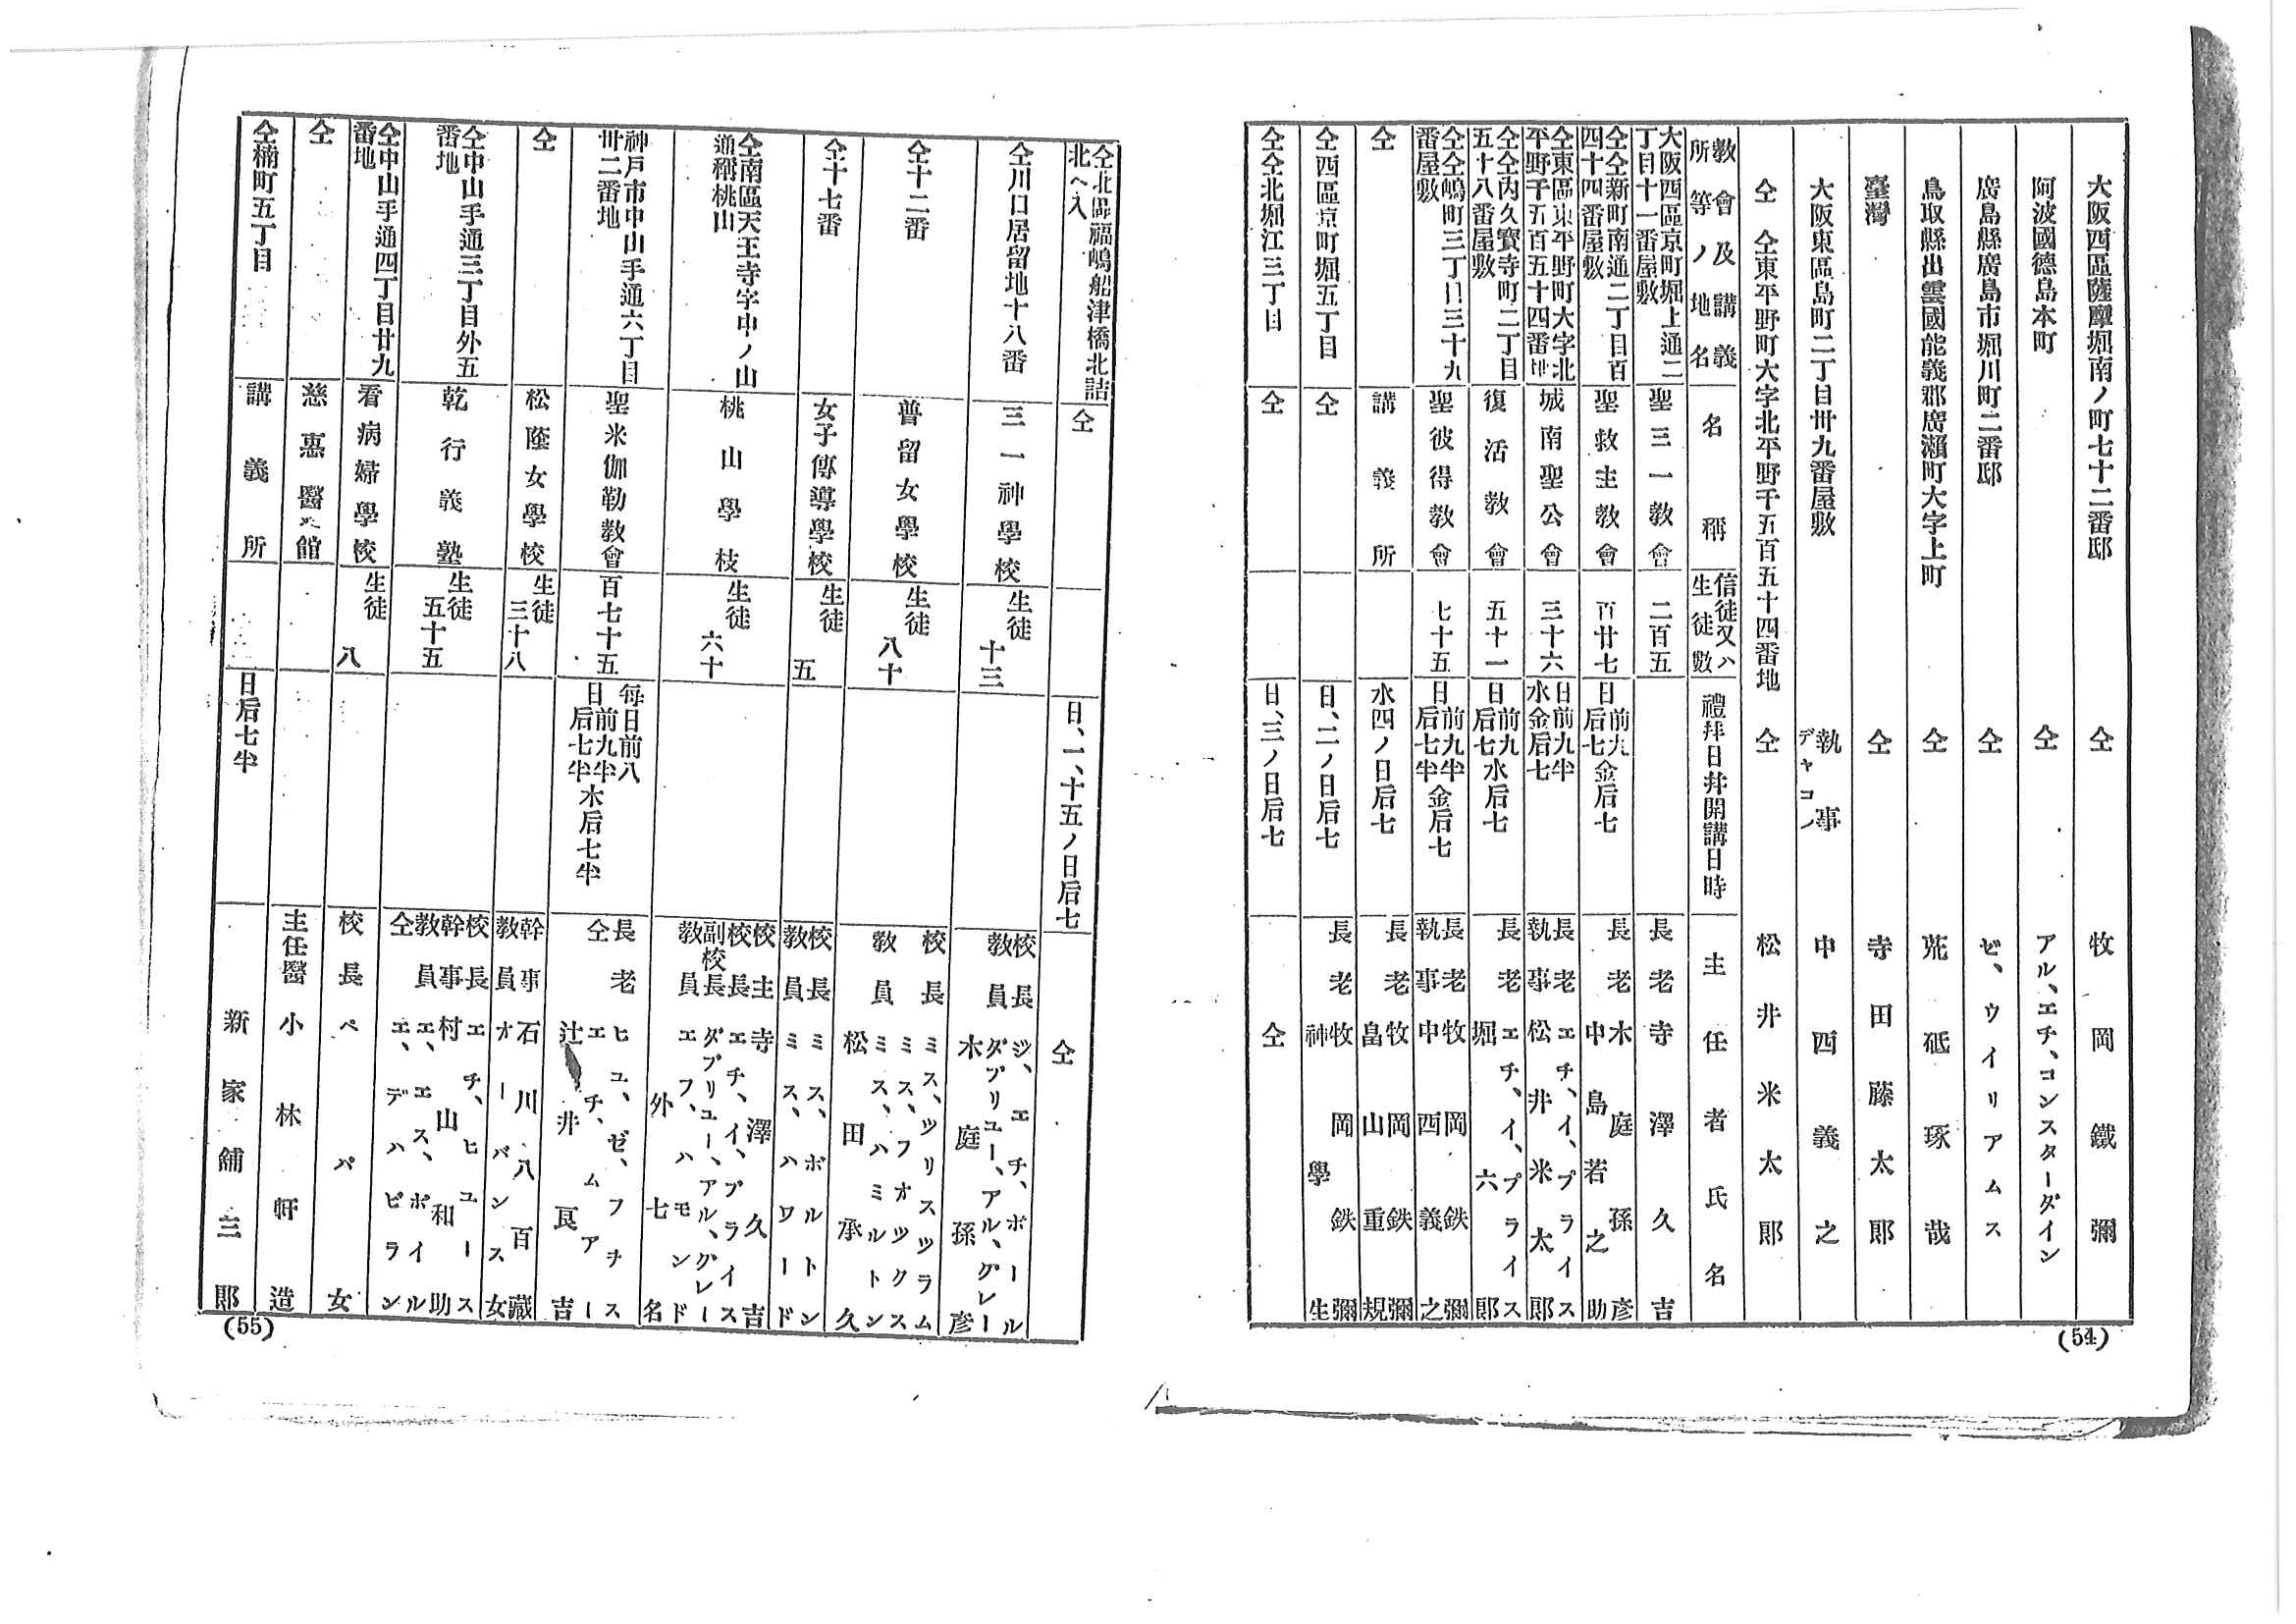 大阪西區薩摩堀南ノ町七十二番邸 仝 牧岡鐵彌
阿波國德島本町 仝 アル、エチ、コンスターダイン
廣島縣廣島市堀川町二番邸 仝 ゼ、ウイリアムス
鳥取縣出雲國能義郡廣瀬町大字上町 仝 荒砥琢哉
臺灣 仝 寺田藤太郎
大阪東區島町二丁目卅九番屋敷 執事 デヤコン 中西義之
仝 仝東平野町大字北平野千五百五十四番地 仝 松井米太郎
教會及講義所等ノ地名 名稱 信徒又ハ生徒數 禮拜日并開講日時 主任者氏名
大阪西區京町堀上通二丁目十一番屋敷 聖三一教會 二百五 長老 寺澤久吉
仝仝新町南通二丁目百四十四番屋敷 聖救主教會 百廿七 日前九后七金后七 長老 木庭孫彦 中島若之助
仝東區東平野町大字北平野千五百五十四番地 城南聖公會 三十六 日前九半水金后七 長老 エチ、イ、プライス 執事 松井米太郎
仝仝內久寳寺町二丁目五十八番屋敷 復活教會 五十一 日前九后七水后七 長老 エチ、イ、プライス 堀六郎
仝仝嶋町三丁目三十九番屋敷 聖彼得教會 七十五 日前九半后七半金后七 長老 牧岡鉄彌 執事 中西義之
仝 講義所 水四ノ日后七 長老 牧岡鉄彌 畠山重規
仝西區京町堀五丁目 仝 日、二ノ日后七 長老 牧岡鉄彌 神學生
仝仝北堀江三丁目 仝 日、三ノ日后七 仝
(54)
仝北區福嶋船津橋北詰北ヘ入 仝 日、一、十五ノ日后七 仝
仝川口居留地十八番 三一神學校 生徒 十三 校長 ジ、エチ、ポール 教員 ダブリユー、アル、グレー 木庭孫彦
仝十二番 普留女學校 生徒 八十 校長 ミス、ツリスツラム ミス、フオツクス 教員 ミス、ハミルトン 松田承久
仝十七番 女子傳導學校 生徒 五 校長 ミス、ボルトン 教員 ミス、ハワード
仝南區天王寺字中ノ山通稱桃山 桃山學枝 生徒 六十 校主 寺澤久吉 校長 エチ、イ、プライス 副校長 ダブリユー、アル、グレー 教員 エフ、ハモンド 外七名
神戸市中山手通六丁目卅二番地 聖米伽勒教會 百七十五 毎日前八 日前九半后七半水后七半 長老 ヒユ、ゼ、フオス 仝 エチ、ムアー 辻井良吉
仝 松蔭女學校 生徒 三十八 幹事 石川八百藏 教員 オーバンス女
仝中山手通三丁目外五番地 乾行義塾 生徒 五十五 校長 エチ、ヒユース 幹事 村山和助 教員 エ、エス、ボイル 仝 エ、デハビラン
仝中山手通四丁目廿九番地 看病婦學校 生徒 八 校長 ペパ女
仝 慈惠醫館 主任醫 小林軒造
仝楠町五丁目 講義所 日后七半 新家舖三郎
(55)